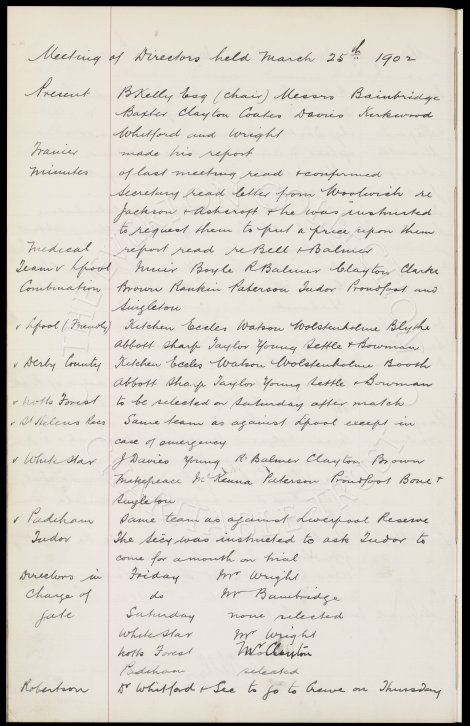 Meeting of Directors held March 25th 1902
Present B Kelly Esq (chair) Messrs Bainbridge
Baxter Clayton Coates Davies Kirkwood
Whitford and Wright
Trainer made his report
Minutes of last meeting read & confirmed
Secretary read letter from Woolwich re
Jackson & Ashcroft & he was instructed
to request them to put a price upon them
Medical report read re Bell & Balmer
Team v Lpool Muir Boyle R Balmer Clayton Clarke
Combination Brown Rankin Paterson Tudor Proudfoot and
Singleton
v Lpool (Friendly) Kitchen Eccles Watson Wolstenholme Blythe
Abbott Sharp Taylor Young Settle & Bowman
v Derby County Kitchen Eccles Watson Wolstenholme Booth
Abbott Sharp Taylor Young Settle & Bowman
v Notts Forest to be selected on Saturday after match
v St Helens Recs Same team as against Lpool except in
case of emergency
v White Star J Davies Young R Balmer Clayton Brown
Makepeace McKenna Paterson Proudfoot Bone &
Singleton
v Padiham Same team as against Liverpool Reserve
Tudor The Secy was instructed to ask Tudor to
come for a month on trial
Directors in Friday Mr Wright
Charge of do Mr Bainbridge
gate Saturday none selected
White Star Mr Wright
Notts Forest Mr Clayton
Padiham selected
Robertson Dr Whitford & Sec to go to Crewe on Thursday